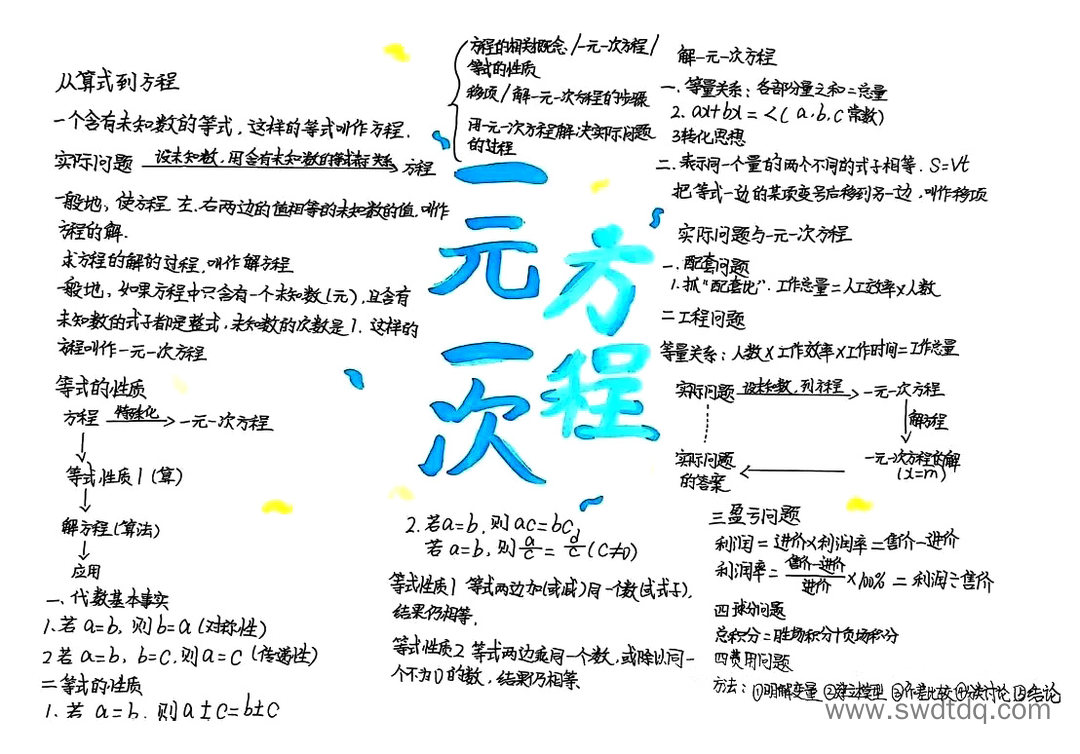 从算式到方程
一个含有未知数的等式,这样的等式叫作方程.
实际问题 设未知数,用含有未知数的等式表示关系 方程
一般地,使方程左.右两边的值相等的未知数的值,叫作
方程的解.
求方程的解的过程,叫作解方程
一般地,如果方程中只含有一个未知数(元),且含有
未知数的式子都是整式,未知数的次数是1.这样的
方程叫作一元一次方程
等式的性质
方程 特殊化 一元一次方程
等式性质1(算)
解方程(算法)
应用
一、代数基本事实
1.若a=b,则b=a(对称性)
2若a=b,b=c,则a=c(传递性)
二等式的性质
1.若a=b,则a±c=b±c
方程的相关概念/一元一次方程/
等式的性质
移项/解一元一次方程的步骤
用一元一次方程解决实际问题
的过程
一元一次
方程
2.若a=b,则ac=bc
若a=b,则a/c=d/c(c≠0)
等式性质1 等式两边加(或减)同一个数(或式子),
结果仍相等,
等式性质2 等式两边乘同一个数,或除以同一
个不为0的数,结果仍相等.
解一元一次方程
一.等量关系:各部分量之和=总量
2.ax+bx=<(a.b.c常数)
3转化思想
二.表示同一个量的两个不同的式子相等.S=Vt
把等式一边的某项变号后移到另一边,叫作移项
实际问题与一元一次方程
一.配套问题
1.抓"配套比".工作总量=人工效率×人数
二工程问题
等量关系:人数×工作效率×工作时间=工作总量
实际问题 设未知数,列方程 一元一次方程
解方程
实际问题 一元一次方程的解
的答案 (x=m)
三盈亏问题
利润=进价×利润率=售价-进价
利润率=售价-进价/进价×100%=利润÷售价
四球分问题
总积分=胜场积分+负场积分
四费用问题
方法:①明解变量②建立模型③作差比较④分类讨论⑤结论
www.swdtdq.com